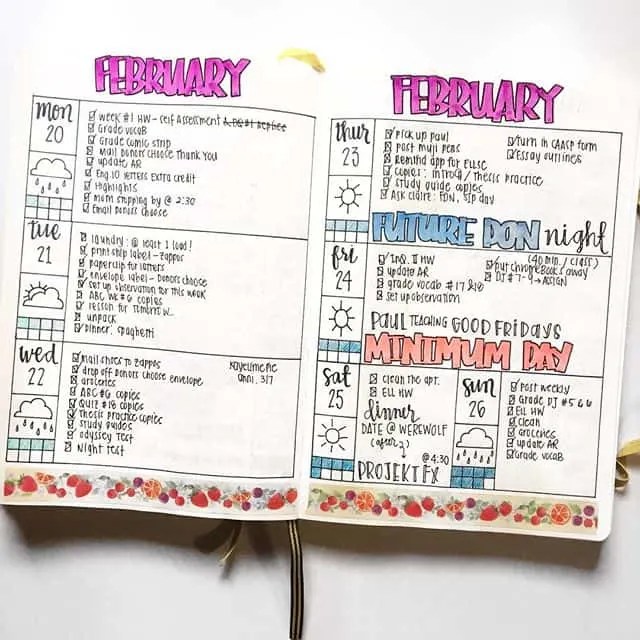 FEBRUARY
mon
20
WEEK #1 HW - Self Assessment & DQ #1 Replies
Grade vocab
Grade comic strip
Mail Donors Choose Thank You
update AR
Eng. 10 letters extra credit
Highlights
Mom stopping by @ 2:30
Email Donors Choose
tue
21
laundry: @ least 1 load!
print ship label - zappos
paperclip for letters
envelope label - Donors choose
set up observation for this week
ABC WK #6 copies
lesson for tomorrow...
unpack
Dinner: spaghetti
wed
22
Mail shoes to zappos
drop off donors choose envelope
groceries
ABC #6 copies
QUIZ #18 copies
Thesis practice copies
study guides
odyssey test
Night test
317
FEBRUARY
thur
23
pick up paul
post muji pens
Remind app for ELLSC
copies: intro 4 / Thesis practice
study guide copies
Ask claire: FDN, SIP day
turn in CAASP form
Essay outlines
FUTURE DON night
fri
24
INQ. II HW
update AR
grade vocab #17 & 18
set up observation
(40 min. / class)
put chromebooks away
DJ #7-9 → ASSIGN
PAUL TEACHING GOOD FRIDAYS
MINIMUM DAY
sat
25
clean the apt.
ELL HW
dinner
DATE @ WEREWOLF
(after)
@ 4:30
PROJEKT FX
sun
26
Post weekly
Grade DJ #5 & 6
ELL HW
clean
groceries
update AR
Grade vocab